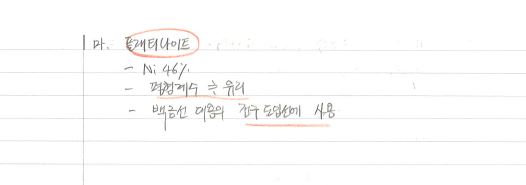 마. 플래티나이트
- Ni 46%
- 팽창계수 ≒ 유리
- 백금선 대용의 전구 도입선에 사용